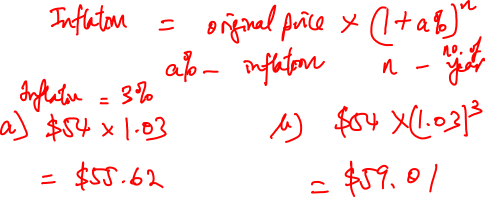 Inflation = original price × (1+a%)^n
a% - inflation n - no. of year
Inflation = 3%
a) $54 × 1.03
= $55.62
b) $54 × (1.03)^3
= $59.01